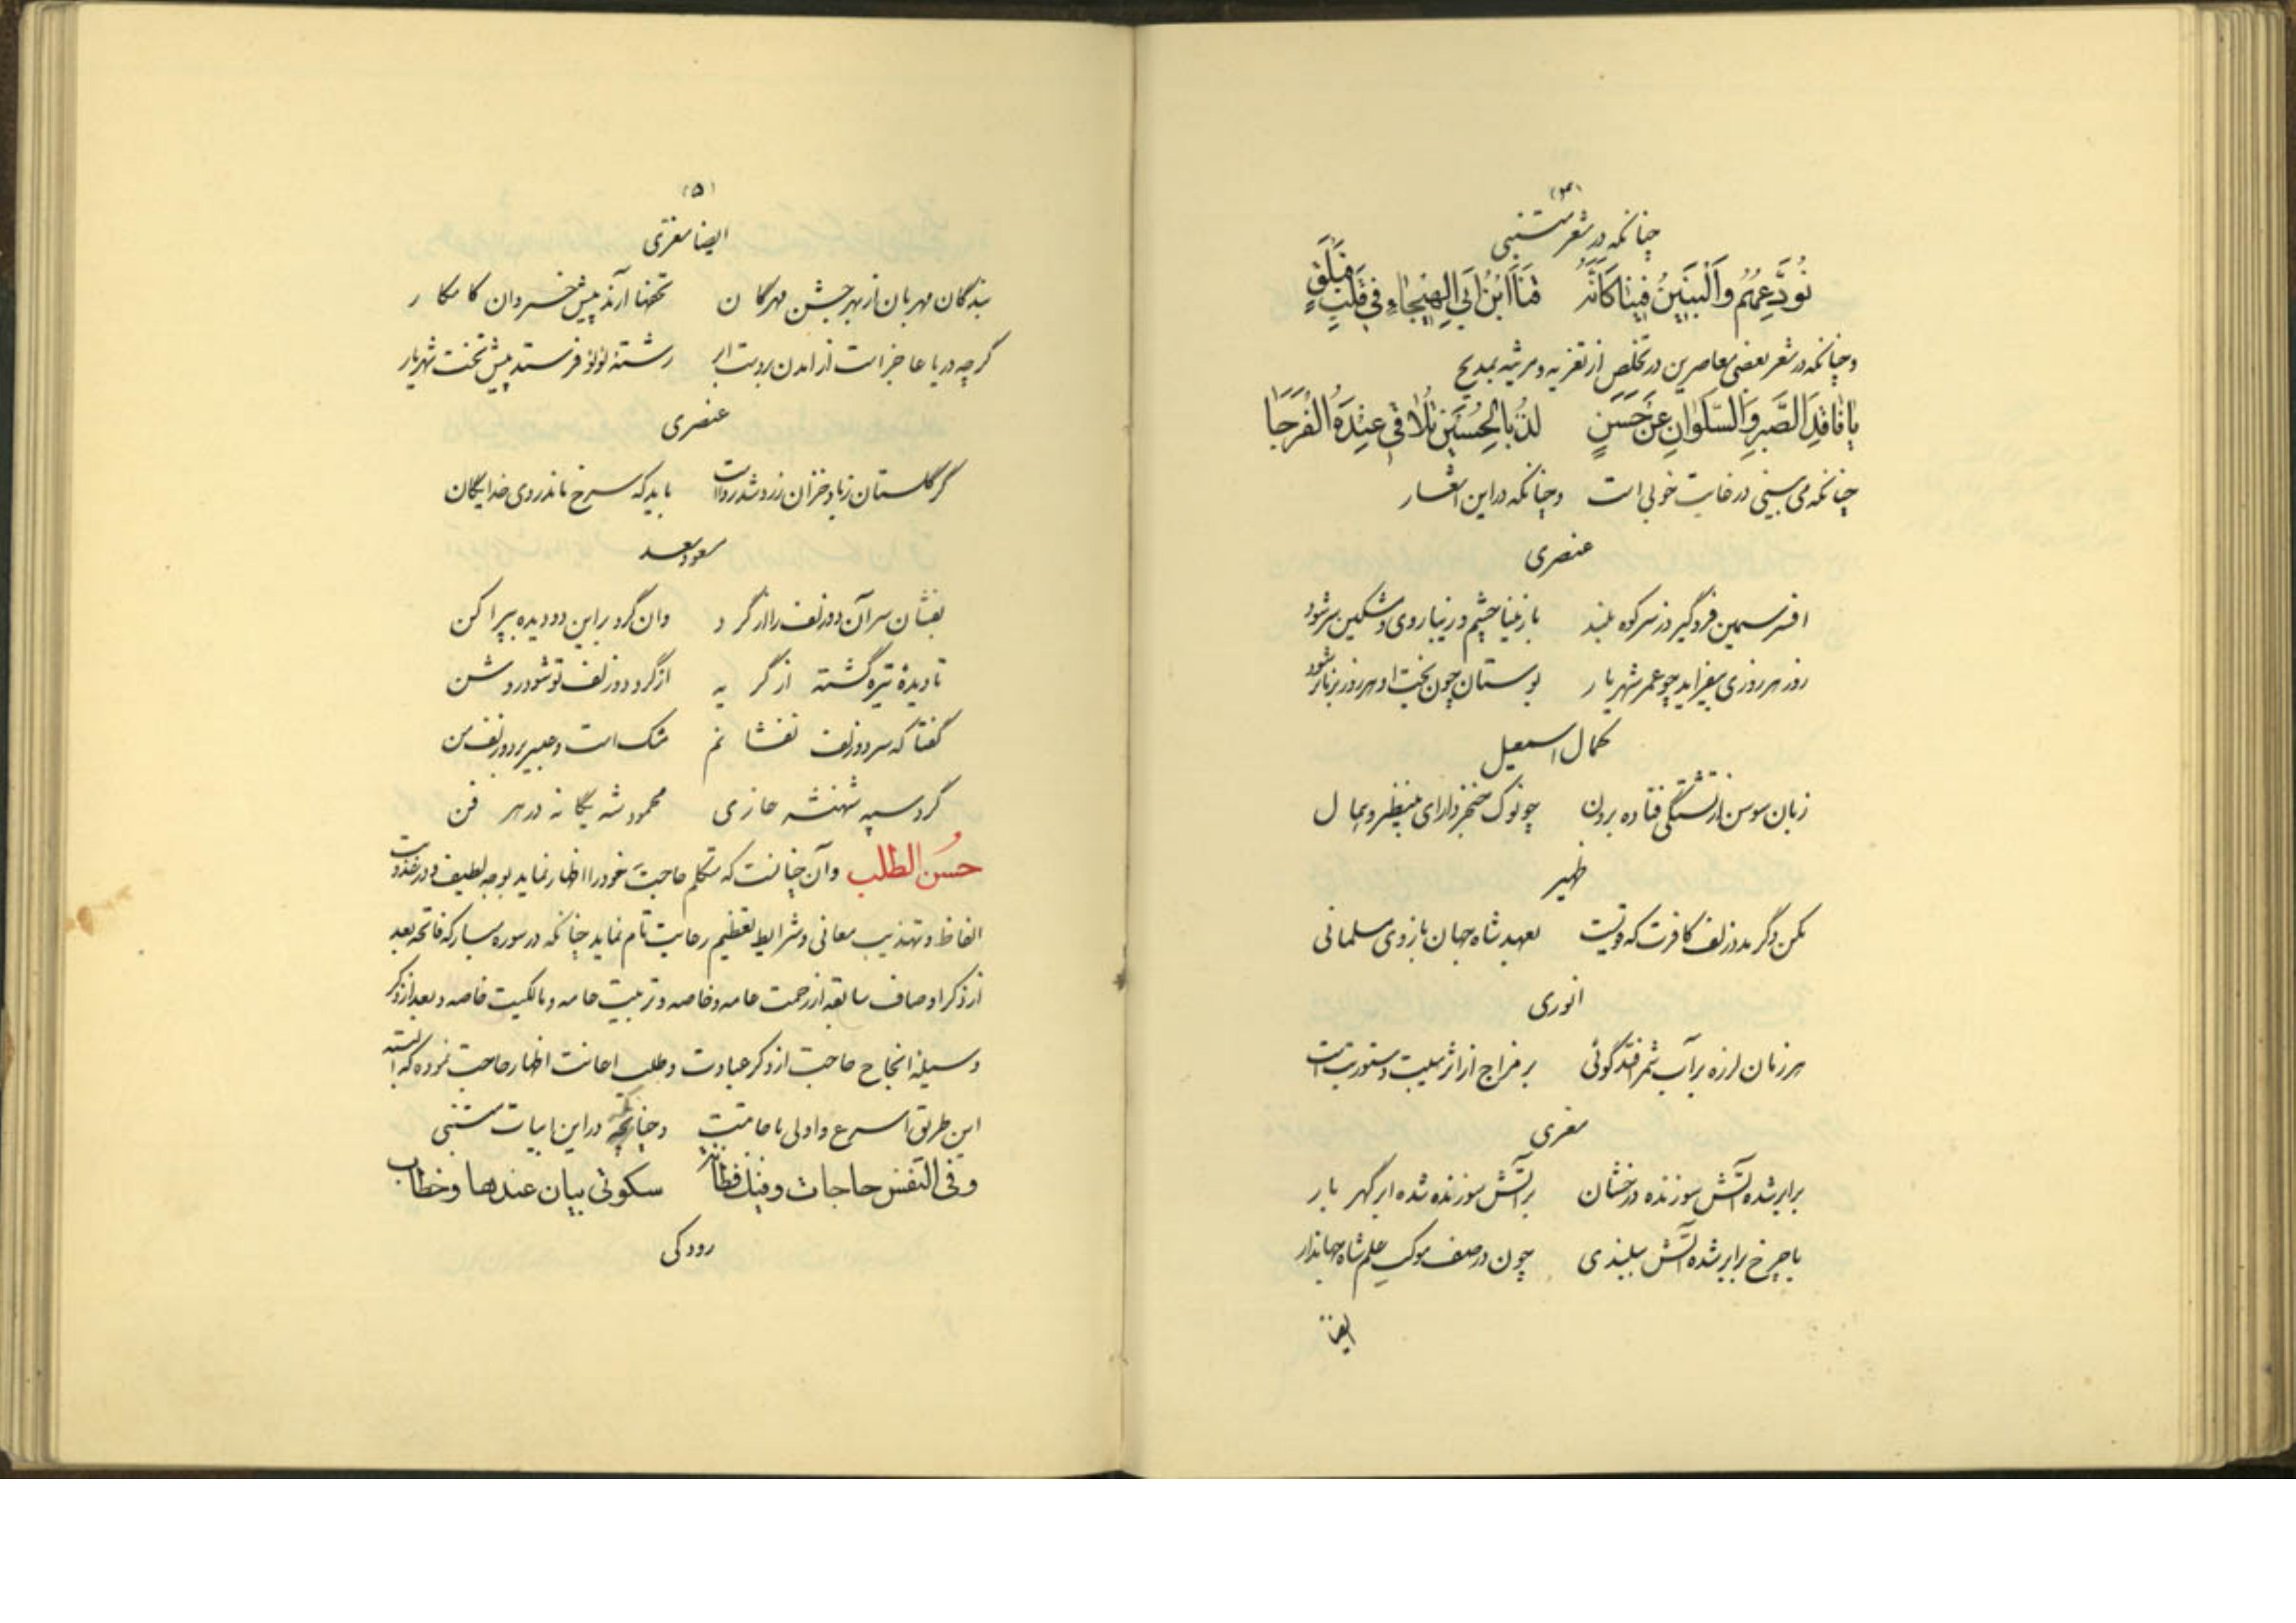 (۴)
چنانکه در شعر متنبی
نُوَدِّعُهُم وَالْبَيْنُ فِينَا كَأَنَّهُ قَنَا ابْنِ أَبِي الْهَيْجَاءِ فِي قَلْبِ فَيْلَقٍ
وچنانکه در شعر بعضی معاصرین در تخلص از تعزیه و مرثیه بمدیح
يَا فَاقِدَ الصَّبْرِ وَالسَّلْوَانِ عَنْ حَسَنٍ لُذْ بِالْحُسَيْنِ تُلَاقِي عِنْدَهُ الْفَرَجَا
چنانکه می بینی در غایت خوبی است وچنانکه در این اشعار
عنصری
افسر سیمین فرو گیرد ز سر کوه بلند باز مینا چشم و زیبا روی و مشکین سر شود
روز هر روزی بیفزاید چو عمر شهریار بوستان چون بخت او هر روز برناتر شود
کمال اسمعیل
زبان سوسن از تشنگی فتاده برون چو نوک خنجر دارای بینظیر و همال
ظهیر
مکن وگر مدد زلف کافرت که تویست بعهد شاه جهان بازوی مسلمانی
انوری
هر زمان لرزه بر آب شمر افتد گوئی بر مزاج از اثر هیبت دستورست است
معزی
برابر شده آتش سوزنده درخشان بر آتش سوزنده شده ابر گهر بار
با چرخ برابر شده آتش ببلندی چون در صف موکب علم شاه جهاندار
ایضا
(۵)
ایضا معزی
بندگان مهربان از بهر جشن مهرگان تحفها آرند پیش خسروان کامکار
گرچه دریا عاجز است از آمدن بر دست ابر رشتهٔ لؤلؤ فرستد پیش تخت شهریار
عنصری
گر گلستان ز باد خزان زرد شد رواست باید که سرخ ماند روی خدایگان
مسعود سعد
بفشان سر آن دو زلف را از گرد وان گرد بر این دو دیده بپراکن
تا دیدهٔ تیره گشته از گریه از گرد دو زلف تو شود روشن
گفتا که سر دو زلف نفشانم مشک است و عبیر بر دو زلف من
گرد سپه شهنشه غازی محمود شه یگانه در هر فن
حُسن الطلب وآن چنانست که متکلم حاجت خود را اظهار نماید بوجه لطیف و در عذوبت
الفاظ و تهذیب معانی و شرایط تعظیم رعایت تام نماید چنانکه در سوره مبارکه فاتحه بعد
از ذکر اوصاف سابقه از رحمت عامه و خاصه و تربیت عامه و مالکیت خاصه و بعد از ذکر
وسیلهٔ انجاح حاجت از ذکر عبادت و طلب اعانت اظهار حاجت نموده که البته
این طریق اسرع و اولی باجابتست وچنانکه در این ابیات متنبی
وفی النفس حاجات وفیك فطانة سكوتی بیان عندها وخطاب
رودکی